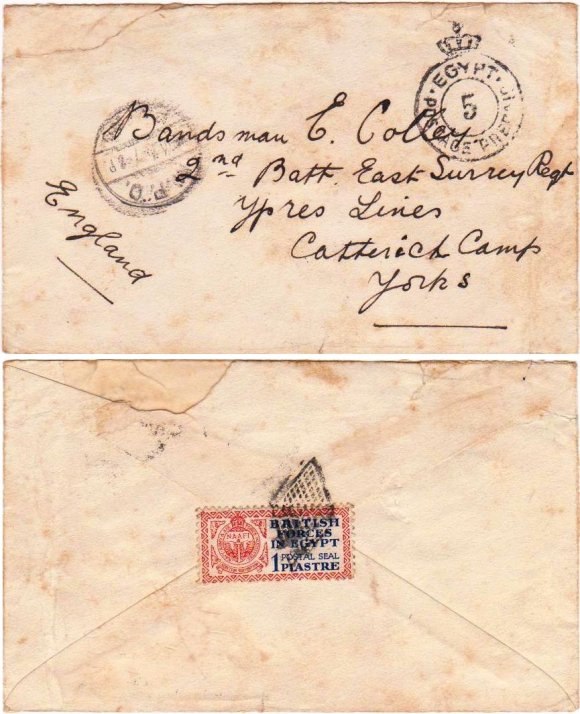 EGYPT
5
POSTAGE PREPAID
Bandsman E. Colley
2nd Batt. East Surrey Regt
Ypres Lines
Catterick Camp
Yorks
England
NAAFI
BRITISH
FORCES
IN EGYPT
POSTAL SEAL
1 PIASTRE